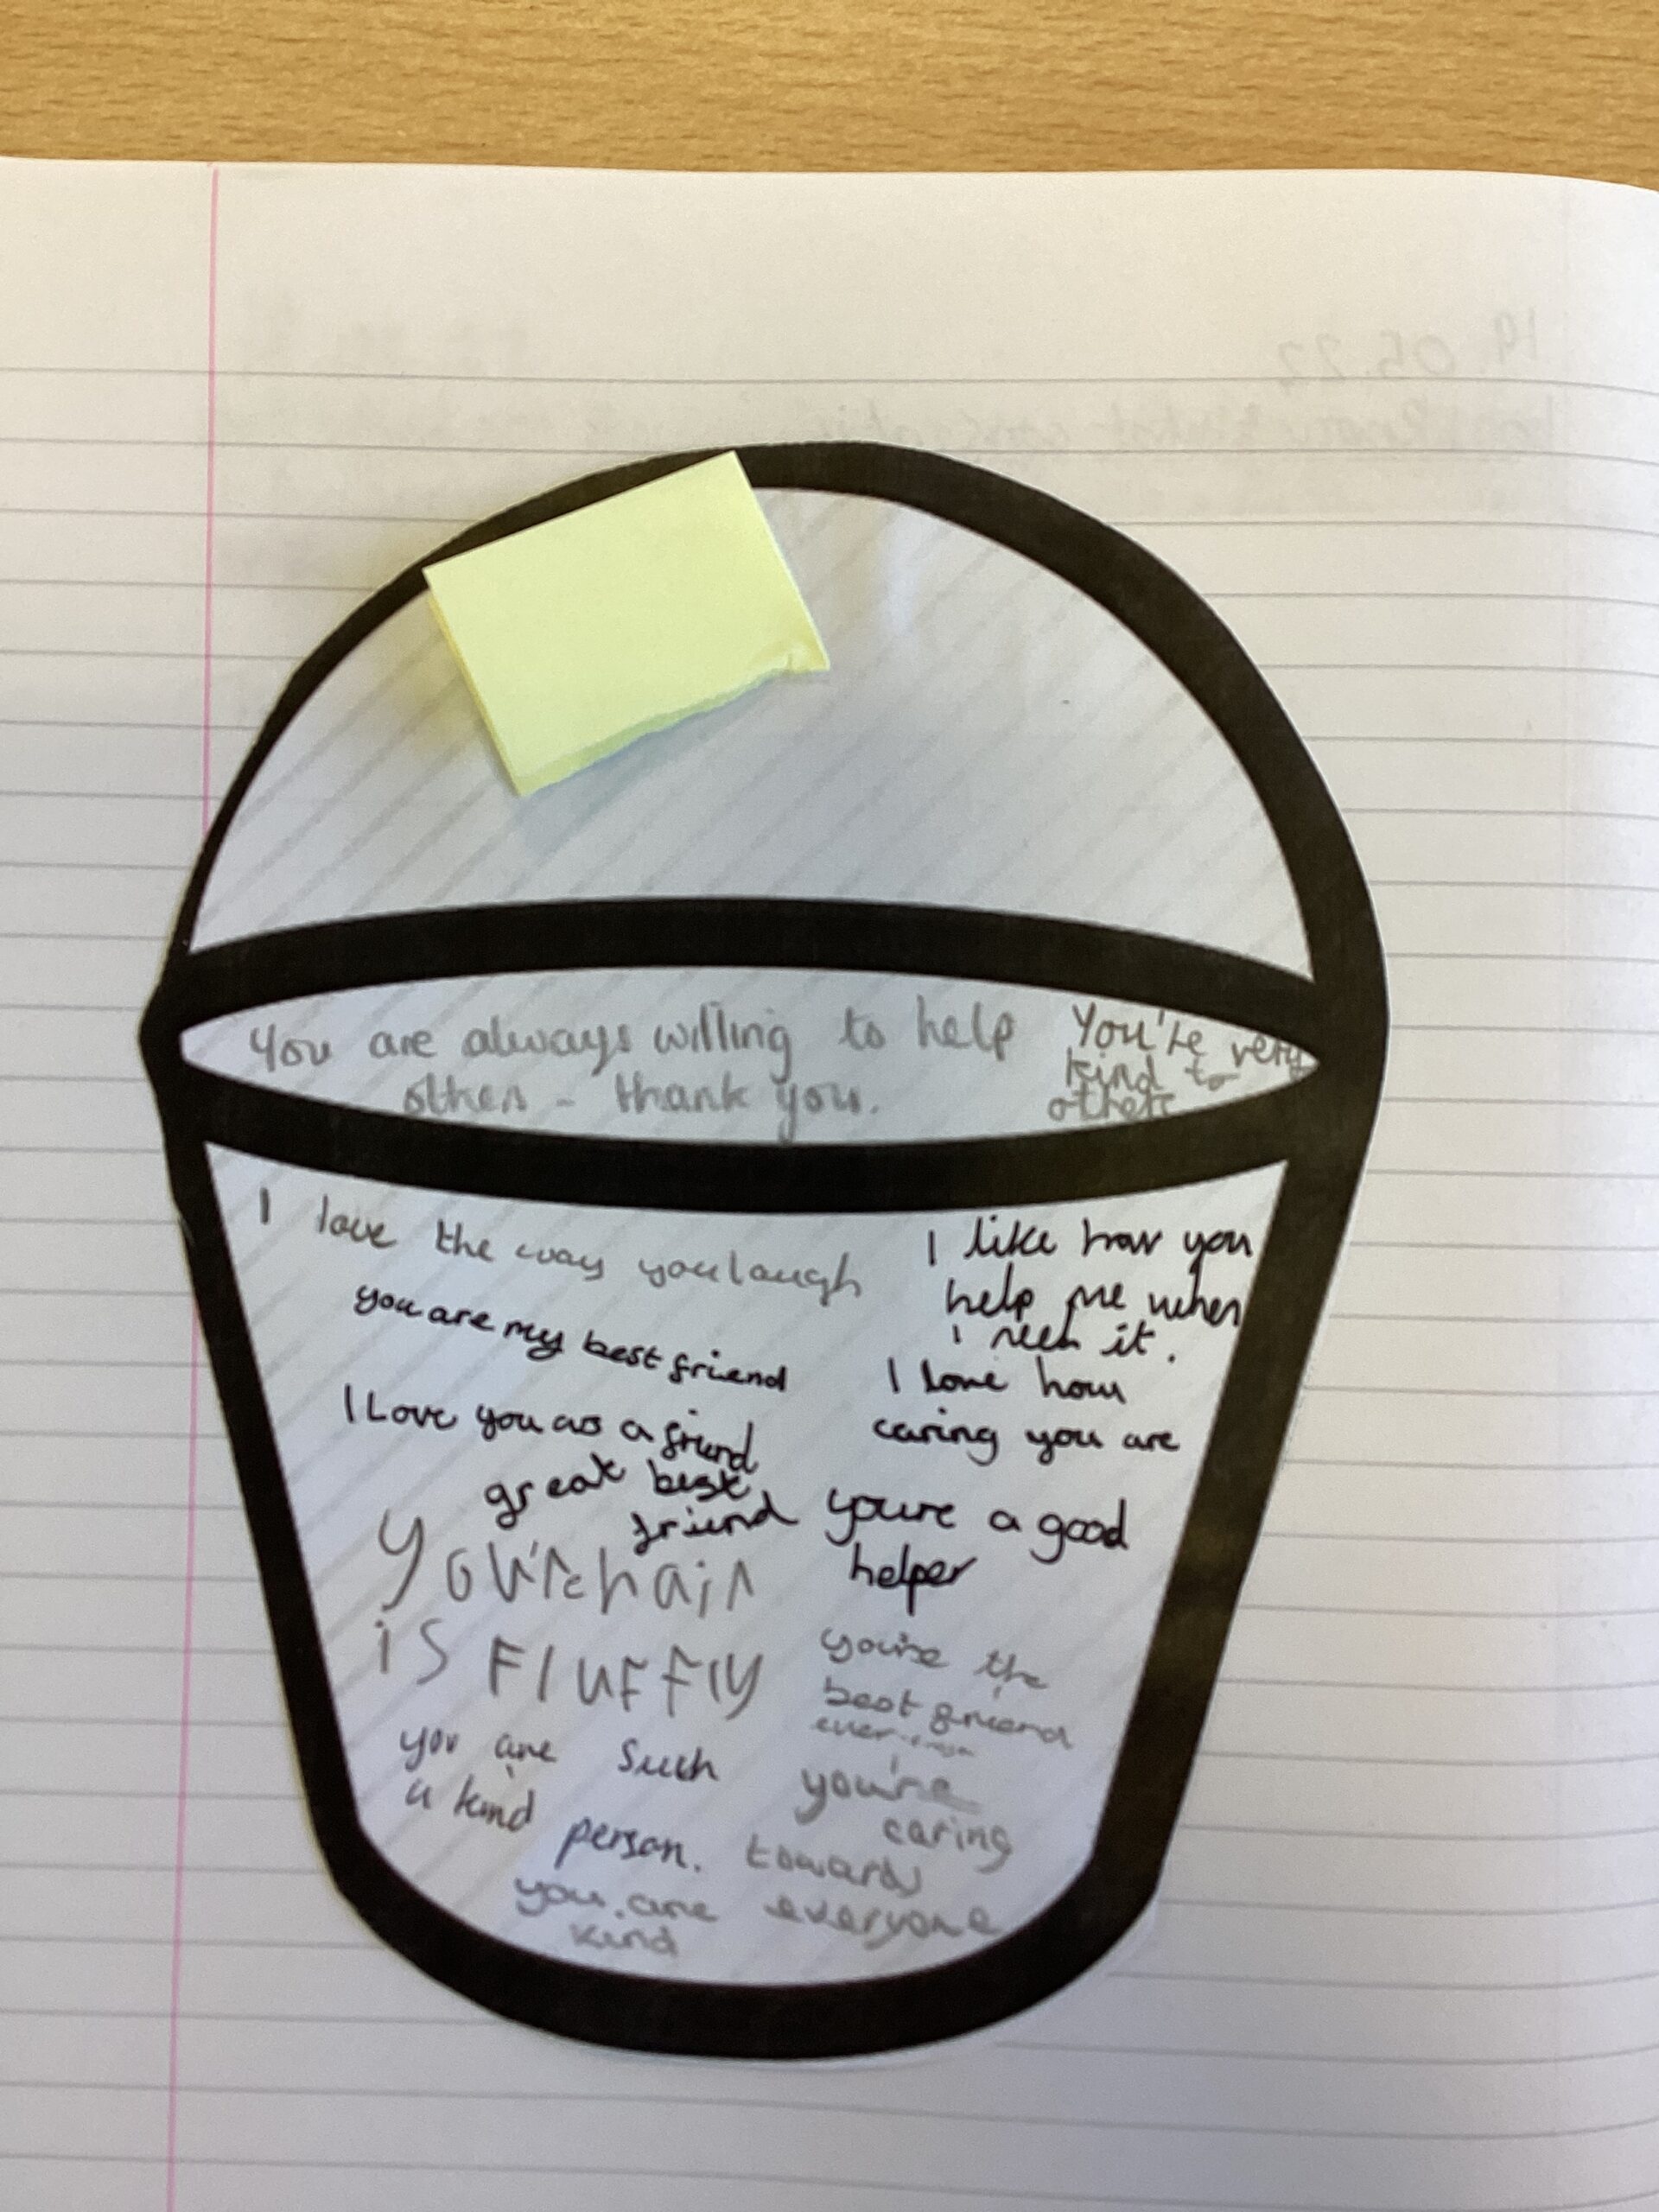 19.05.22
You are always willing to help
others - thank you.
You're very
kind to
others
I love the way you laugh
you are my best friend
I Love you as a friend
great best
friend
you're hair
is Fluffly
you are such
a kind
person.
you are
kind
I like how you
help me when
I need it.
I love how
caring you are
you're a good
helper
you're the
best friend
ever
you're
caring
towards
everyone